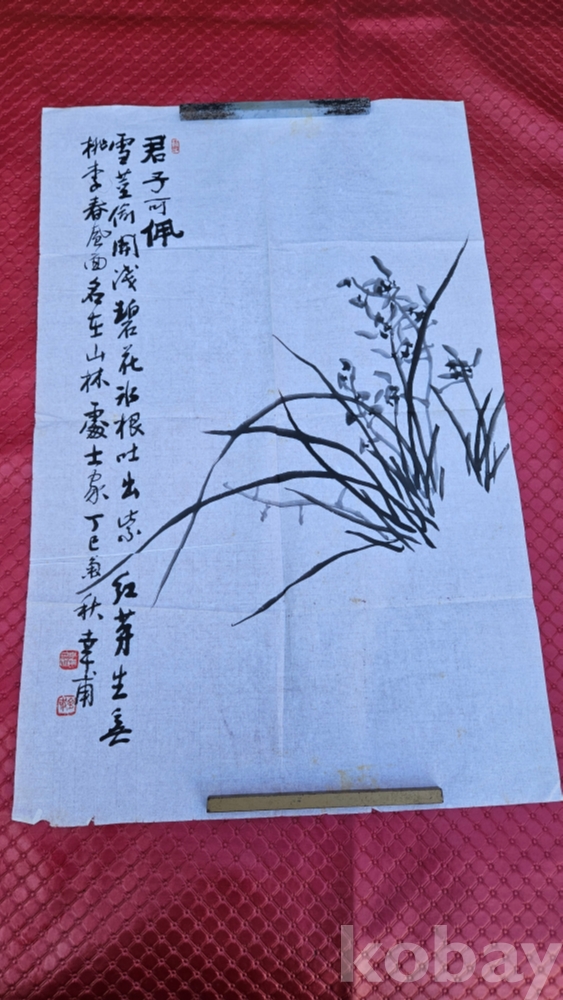 君子可佩
雪莖偷開淺碧花冰根吐出紫紅芽生無
桃李春風面名在山林處士家丁巳秋甫
kobay